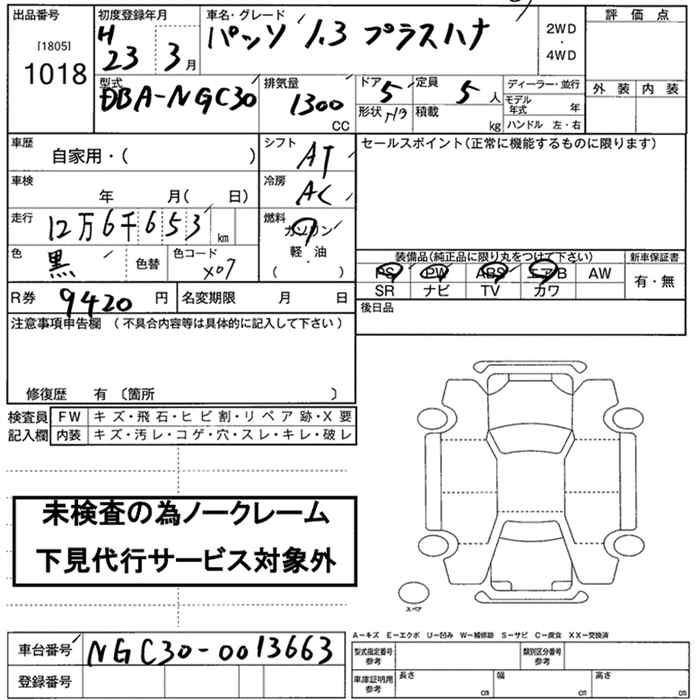 出品番号
[1805]
1018
初度登録年月
H
23 3月
車名・グレード
パッソ 1.3 プラスハナ
2WD
・
4WD
評価点
外装 内装
型式
DBA-NGC30
排気量
1300
CC
ドア 5
形状 H/B
定員 5人
積載 kg
ディーラー・並行
モデル年式 年
ハンドル 左・右
車歴
自家用・( )
シフト AT
セールスポイント(正常に機能するものに限ります)
車検
年 月( 日)
冷房 AC
走行 12万6千653 km
燃料
ガソリン
軽・油
( )
色 黒
色替
色コード X07
装備品(純正品に限り丸をつけて下さい)
新車保証書
PS PW ABS エアB AW
SR ナビ TV カワ
有・無
R券 9420 円
名変期限 月 日
後日品
注意事項申告欄 (不具合内容等は具体的に記入して下さい)
修復歴 有 〔箇所 〕
検査員
記入欄
FW キズ・飛石・ヒビ割・リペア跡・X要
内装 キズ・汚レ・コゲ・穴・スレ・キレ・破レ
未検査の為ノークレーム
下見代行サービス対象外
スペア
車台番号 NGC30-0013663
登録番号
A-キズ E-エクボ U-凹み W-補修跡 S-サビ C-腐食 XX-交換済
型式指定番号
参考
類別区分番号
参考
車庫証明用
参考
長さ cm 幅 cm 高さ cm